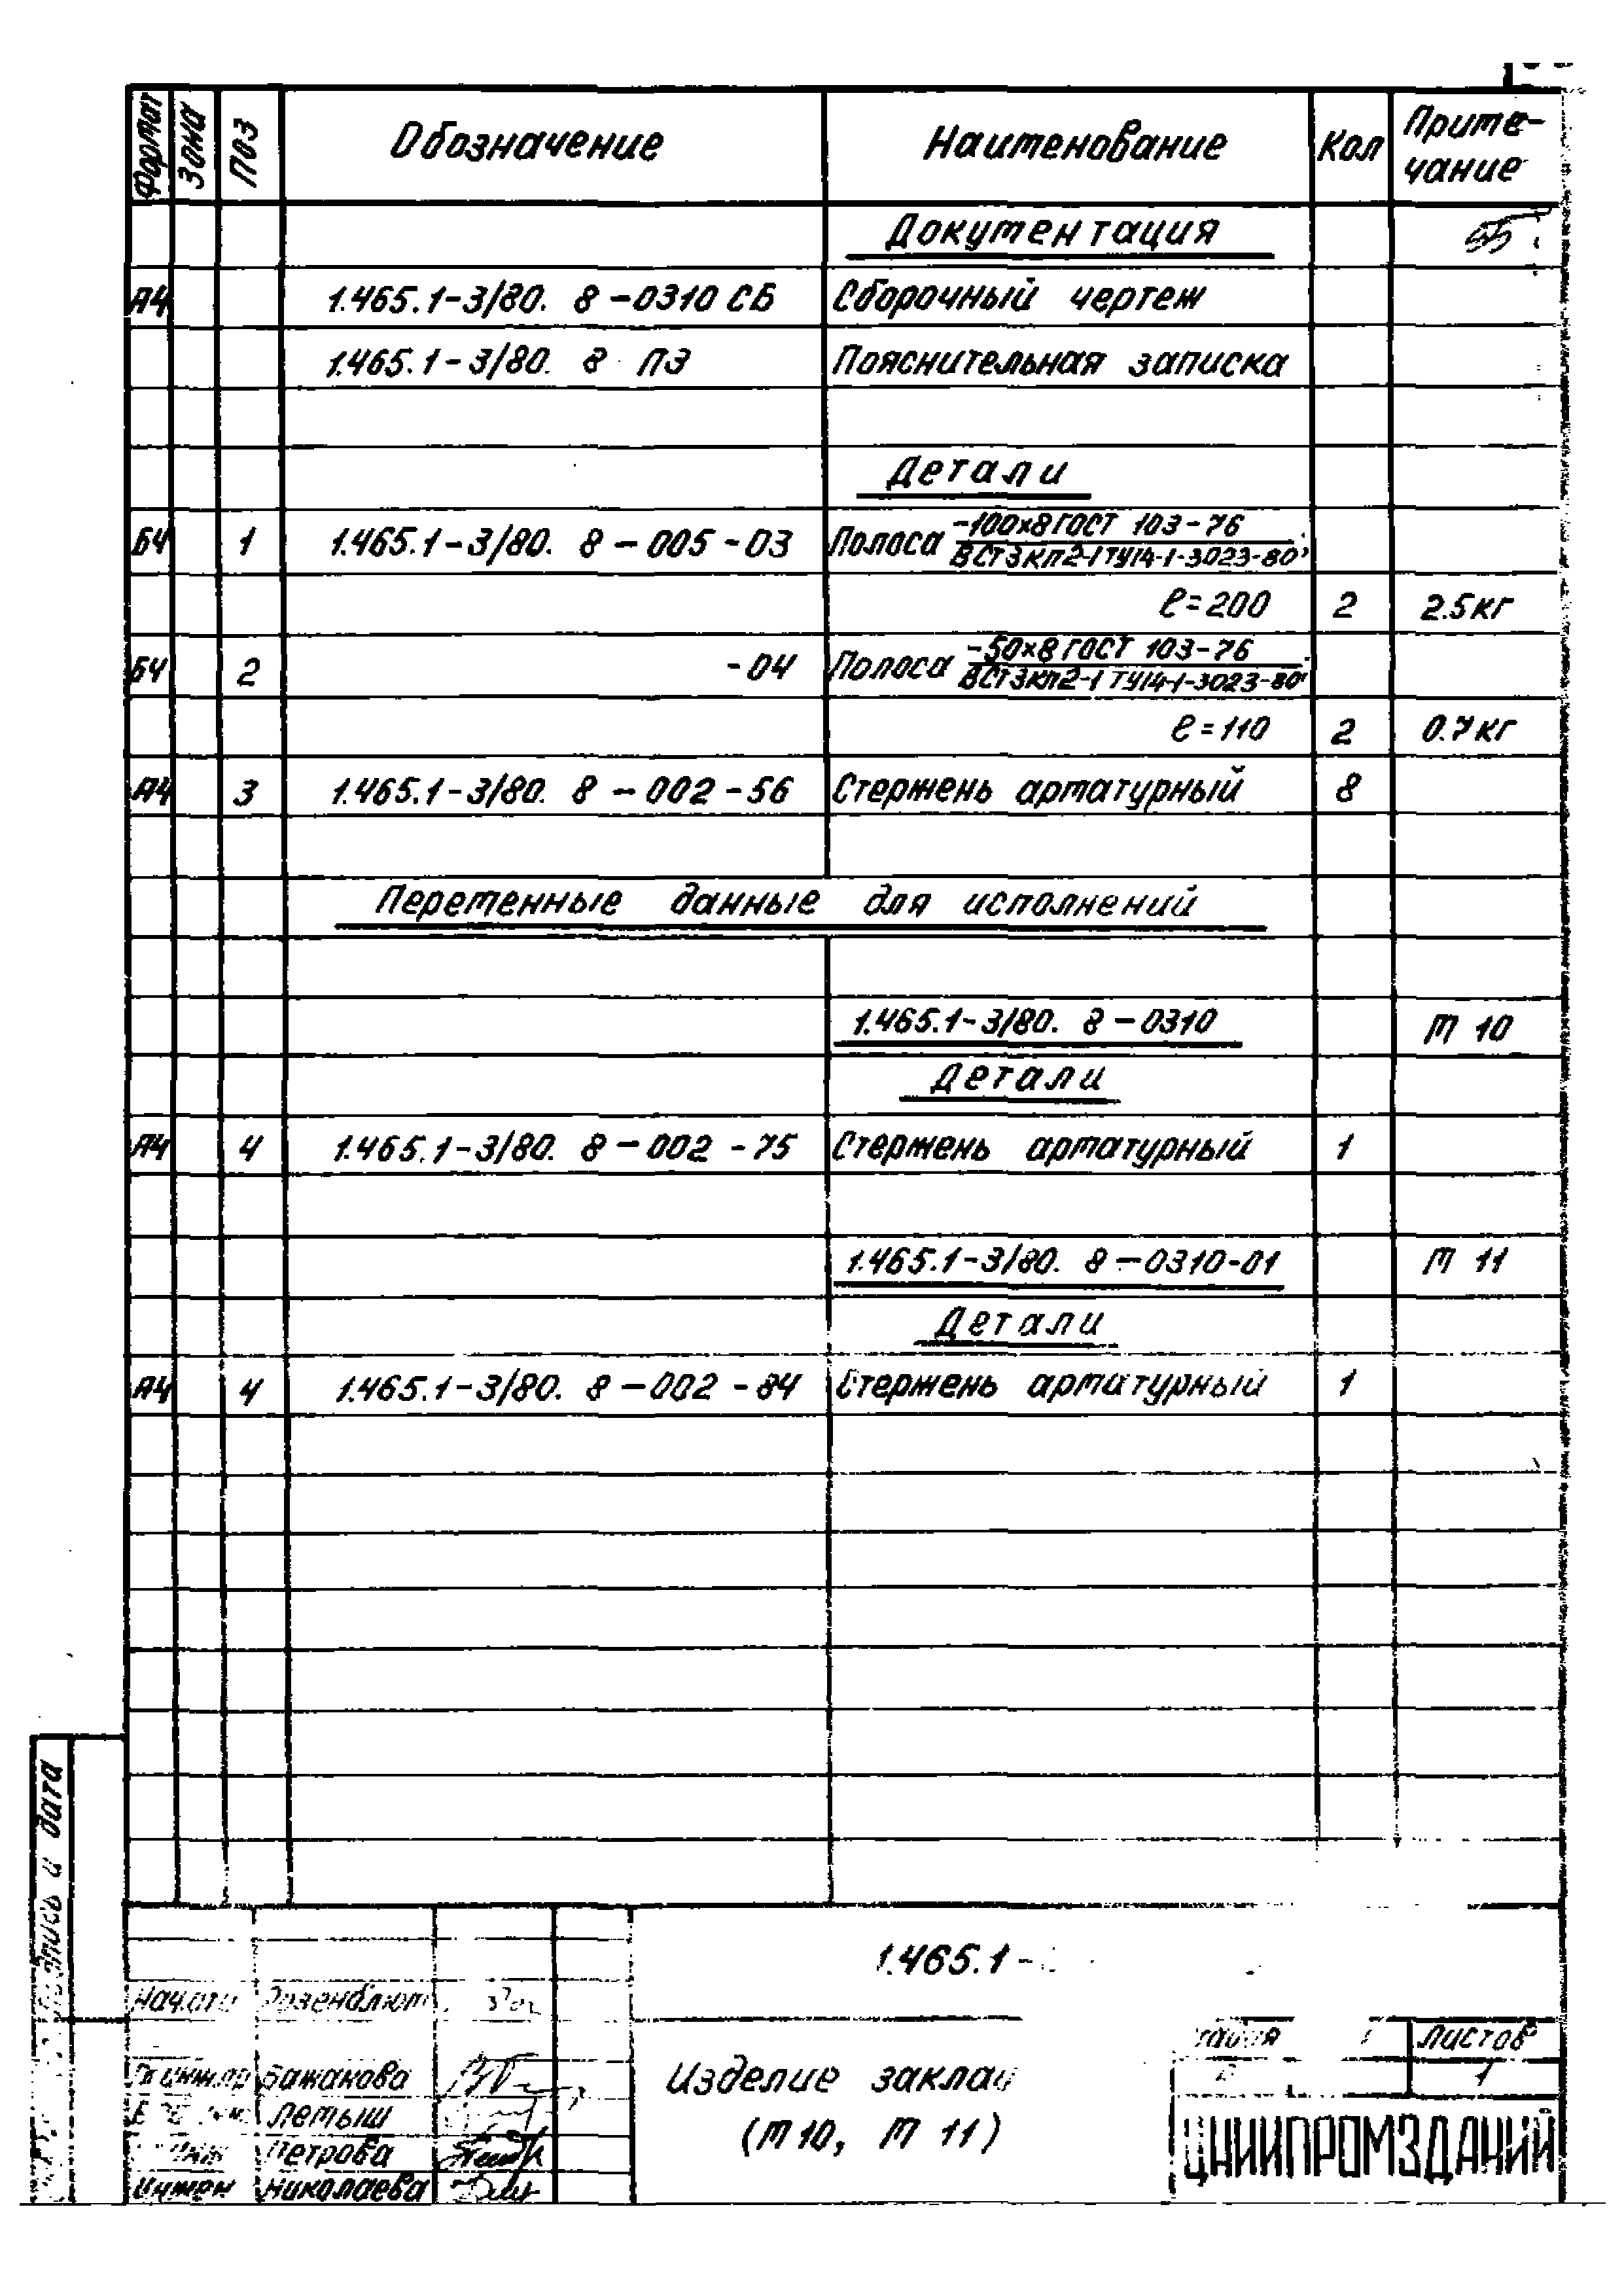 Формат Зона Поз Обозначение Наименование Кол Приме-
чание
Документация 55
А4 1.465.1-3/80. 8-0310 СБ Сборочный чертеж
1.465.1-3/80. 8 ПЗ Пояснительная записка
Детали
Б4 1 1.465.1-3/80. 8-005-03 Полоса -100×8 ГОСТ 103-76
ВСт3кп2-1 ТУ14-1-3023-80
ℓ=200 2 2.5кг
Б4 2 -04 Полоса -50×8 ГОСТ 103-76
ВСт3кп2-1 ТУ14-1-3023-80
ℓ=110 2 0.7кг
А4 3 1.465.1-3/80. 8-002-56 Стержень арматурный 8
Переменные данные для исполнений
1.465.1-3/80. 8-0310 М 10
Детали
А4 4 1.465.1-3/80. 8-002-75 Стержень арматурный 1
1.465.1-3/80. 8-0310-01 М 11
Детали
А4 4 1.465.1-3/80. 8-002-84 Стержень арматурный 1
и дата
1.465.1-
Нач.отд Розенблюм
Листов
Бажанова
1
Изделие заклад
Лемыш
(М 10, М 11)
Петрова
ЦНИИПРОМЗДАНИЙ
Инжен Николаева